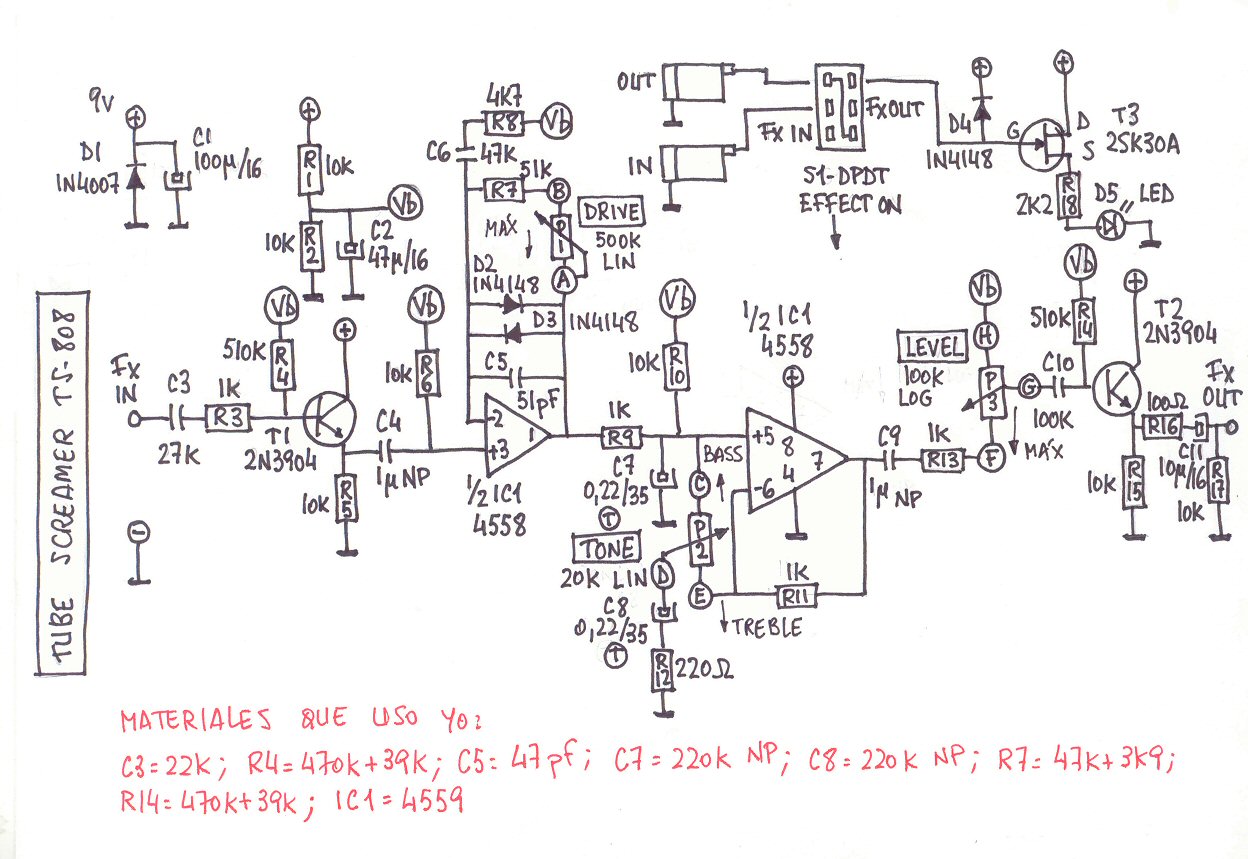 TUBE SCREAMER TS-808
9V
+
D1
1N4007
C1
100µ/16
+
R1
10K
Vb
10K
R2
C2
47µ/16
4K7
R8
Vb
C6
47K
51K
R7
B
MÁX
P1
DRIVE
500K
LIN
A
D2
1N4148
D3
1N4148
C5
51pF
OUT
IN
FX IN
FXOUT
S1-DPDT
EFFECT ON
+
D4
1N4148
+
G
D
S
T3
2SK30A
2K2
R18
D5
LED
FX
IN
C3
27K
1K
R3
Vb
510K
R4
+
T1
2N3904
10K
R5
C4
1µ NP
Vb
10K
R6
-2
+3
1
1/2 IC1
4558
1K
R9
Vb
10K
R10
C7
0,22/35
T
BASS
C
P2
TONE
20K LIN
D
E
TREBLE
C8
0,22/35
T
R12
220Ω
1/2 IC1
4558
+
+5
8
4
7
-6
1K
R11
C9
1µ NP
1K
R13
F
MÁX
LEVEL
100K
LOG
P3
Vb
H
G
C10
100K
Vb
510K
R14
+
T2
2N3904
FX
OUT
100Ω
R16
C11
10µ/16
10K
R15
R17
10K
-
MATERIALES QUE USO YO:
C3=22K; R4=470K+39K; C5=47pf; C7=220K NP; C8=220K NP; R7=47K+3K9;
R14=470K+39K; IC1=4559